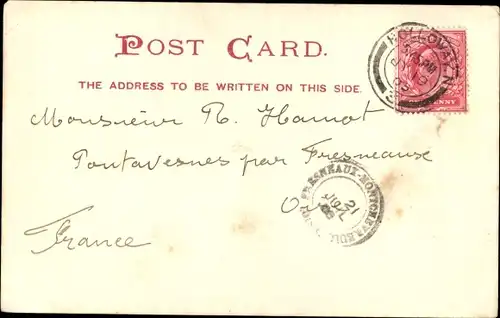 POST CARD.
THE ADDRESS TO BE WRITTEN ON THIS SIDE.
HOLLOWAY. N
PENNY
Monsieur R. Hamot
Pontavesnes par Fresneaux
FRESNEAUX-MONTCHEVREUIL
21
France